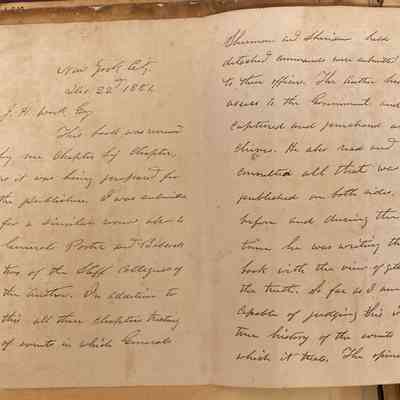 New York City,
Dec. 22nd 1881.
J. H. Work Esq
This book was revised
by me chapter by chapter,
as it was being prepared for
the publisher. It was submitted
for a similar review also to
Generals Porter and Babcock
two of the Staff colleagues of
the author. In addition to
this all those chapters treating
of events in which Generals
Sherman and Sheridan held
detached commands were submitted
to those officers. The Author had
access to the Government and
captured and purchased ar-
chives. He also read and
consulted all that was
published on both sides,
before and during the
time he was writing the
book with the view of get
the truth. So far as I am
capable of judging this is
true history of the events
which it treats. The opin